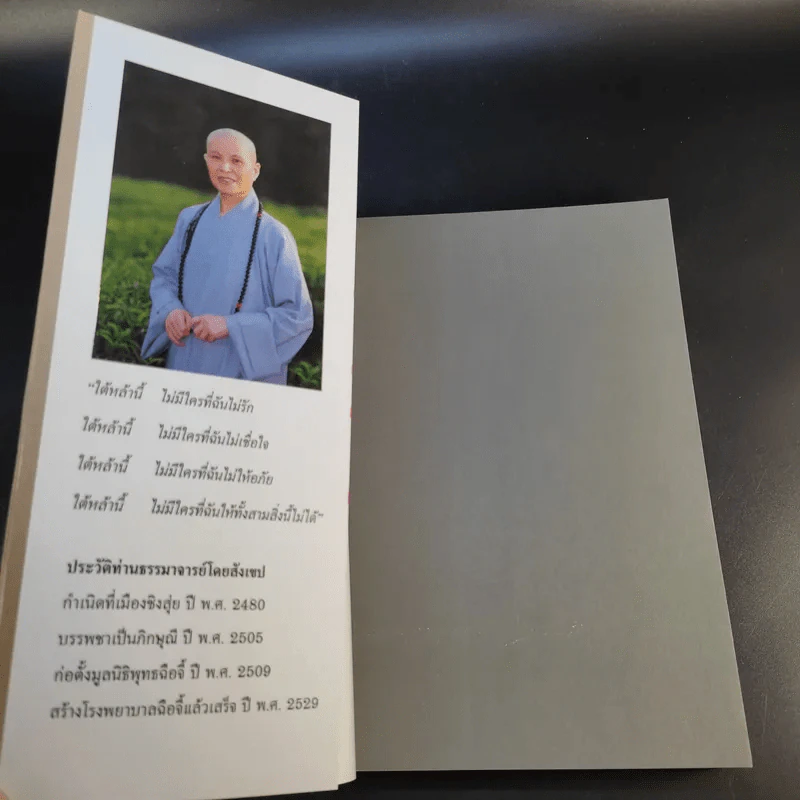 “ใต้หล้านี้ ไม่มีใครที่ฉันไม่รัก
ใต้หล้านี้ ไม่มีใครที่ฉันไม่เชื่อใจ
ใต้หล้านี้ ไม่มีใครที่ฉันไม่ให้อภัย
ใต้หล้านี้ ไม่มีใครที่ฉันให้ทั้งสามสิ่งนี้ไม่ได้”
ประวัติท่านธรรมาจารย์โดยสังเขป
กำเนิดที่เมืองชิงสุ่ย ปี พ.ศ. 2480
บรรพชาเป็นภิกษุณี ปี พ.ศ. 2505
ก่อตั้งมูลนิธิพุทธฉือจี้ ปี พ.ศ. 2509
สร้างโรงพยาบาลฉือจี้แล้วเสร็จ ปี พ.ศ. 2529